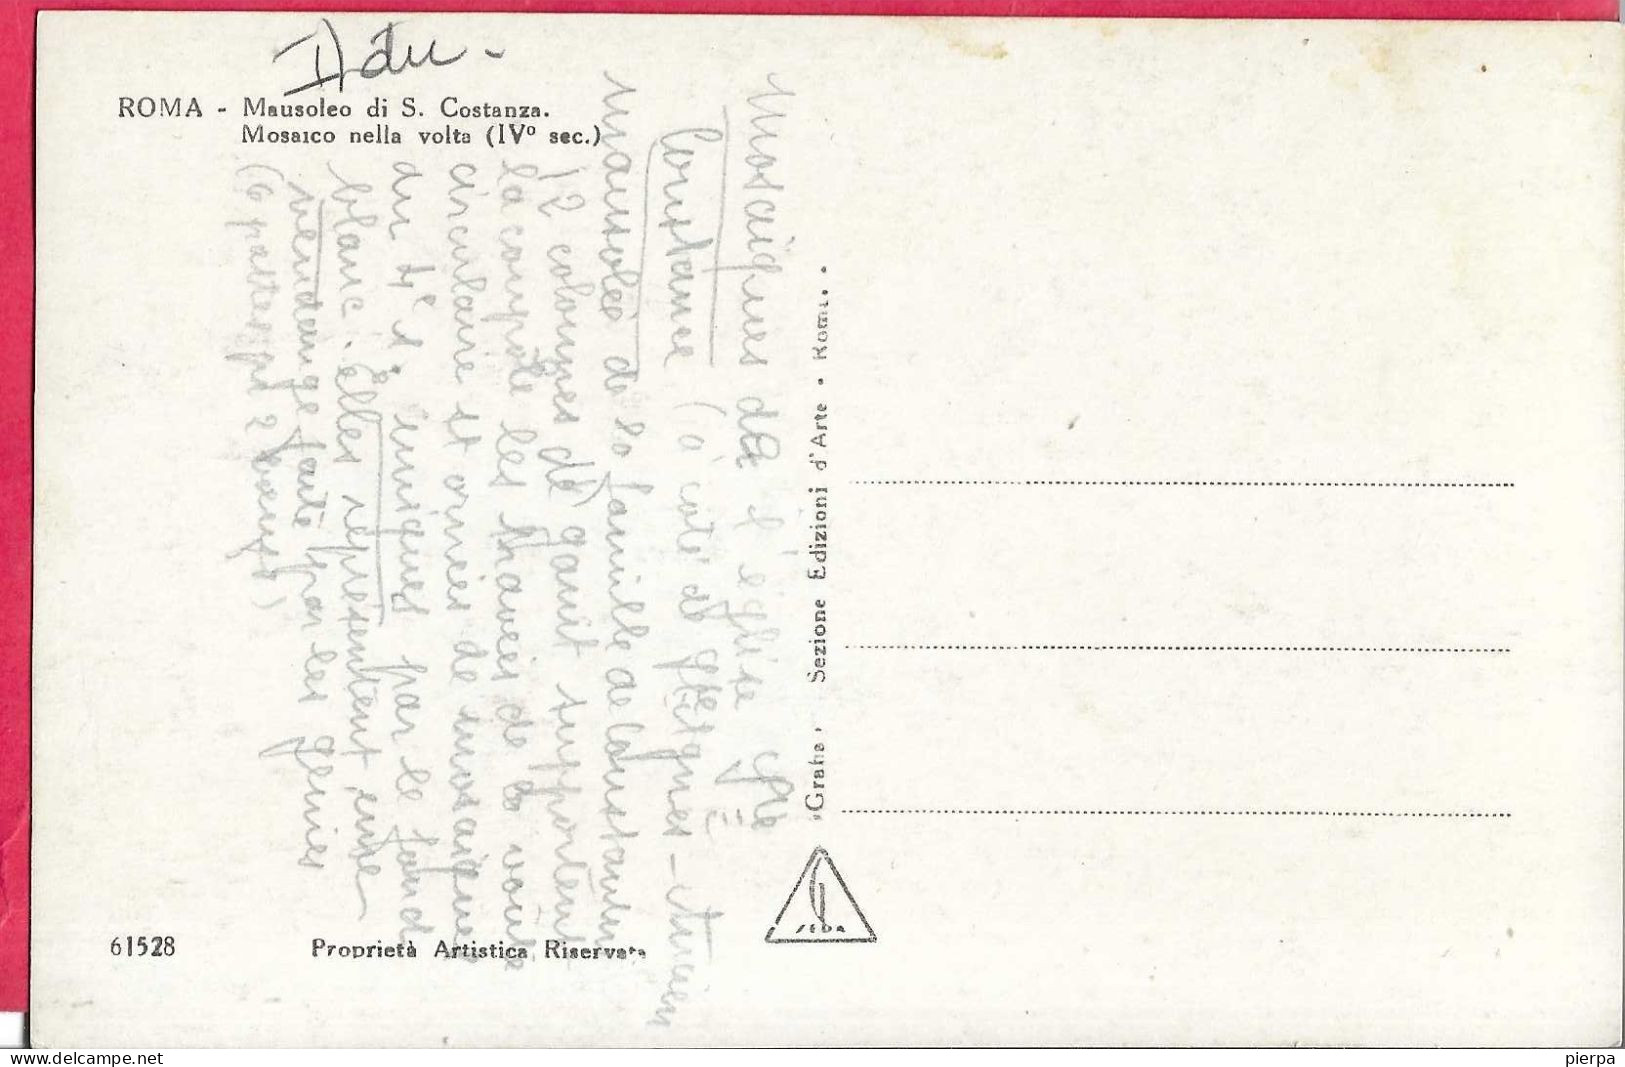 ROMA - Mausoleo di S. Costanza.
Mosaico nella volta (IVº sec.)
Mosaïques de l'église Ste
Constance (à côté de Ste Agnès - Ancien
mausolée de la famille de Constantin
12 colonnes de granit supportent
la coupole les travées de la voûte
circulaire st ornées de mosaïques
du 4e s. uniques par le fond
blanc. Elles représentent une
vendange faite par les génies
(6 pattes pr 2
«Grafia» Sezione Edizioni d'Arte • Roma •
SEDA
61528 Proprietà Artistica Riservata
www.delcampe.net
pierpa